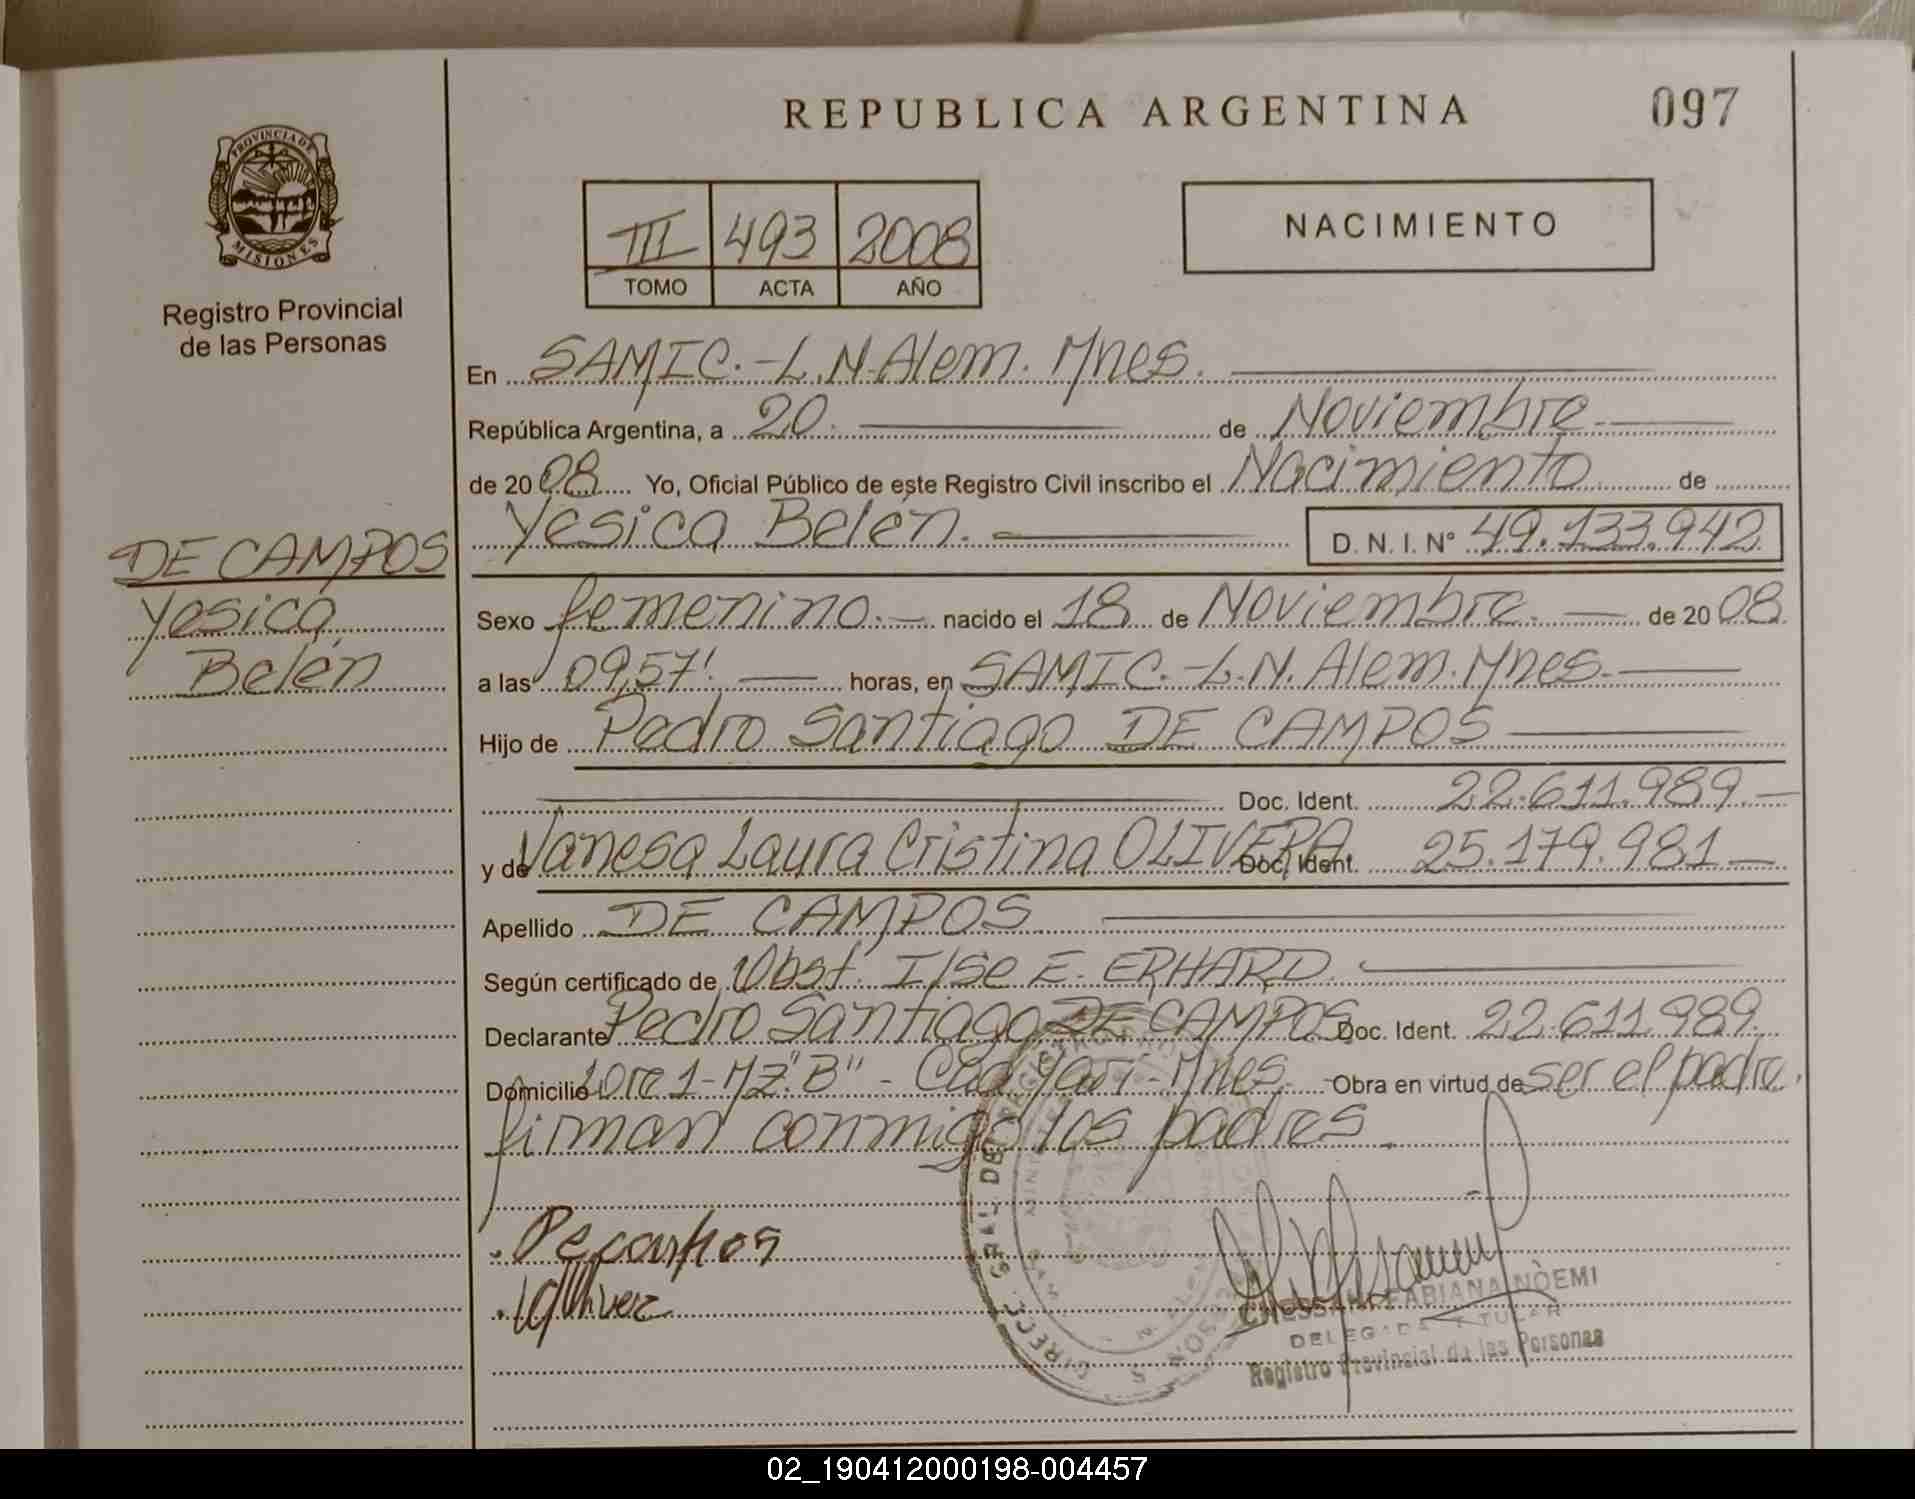 REPUBLICA ARGENTINA
097
PROVINCIA DE
MISIONES
Registro Provincial
de las Personas
III 493 2008
TOMO ACTA AÑO
NACIMIENTO
En SAMIC.-L.N.Alem. Mnes.
República Argentina, a 20. de Noviembre
de 2008 Yo, Oficial Público de este Registro Civil inscribo el Nacimiento de
Yesica Belén. D. N. I. N° 49.133.942
DE CAMPOS
Yesica
Belén
Sexo femenino.- nacido el 18 de Noviembre. de 2008
a las 09,57' horas, en SAMIC.-L.N. Alem. Mnes.
Hijo de Pedro Santiago DE CAMPOS
Doc. Ident. 22.611.989.-
y de Vanesa Laura Cristina OLIVERA Doc. Ident. 25.179.981-
Apellido DE CAMPOS
Según certificado de Obst. Ilse E. ERHARD.
Declarante Pedro Santiago DE CAMPOS Doc. Ident. 22.611.989.
Domicilio Lote 1-Mz."B" - Yari-Mnes. Obra en virtud de ser el padre.
firman conmigo los padres.
FABIANA NOEMI
DELEGADA TITULAR
Registro Provincial de las Personas
02_190412000198-004457